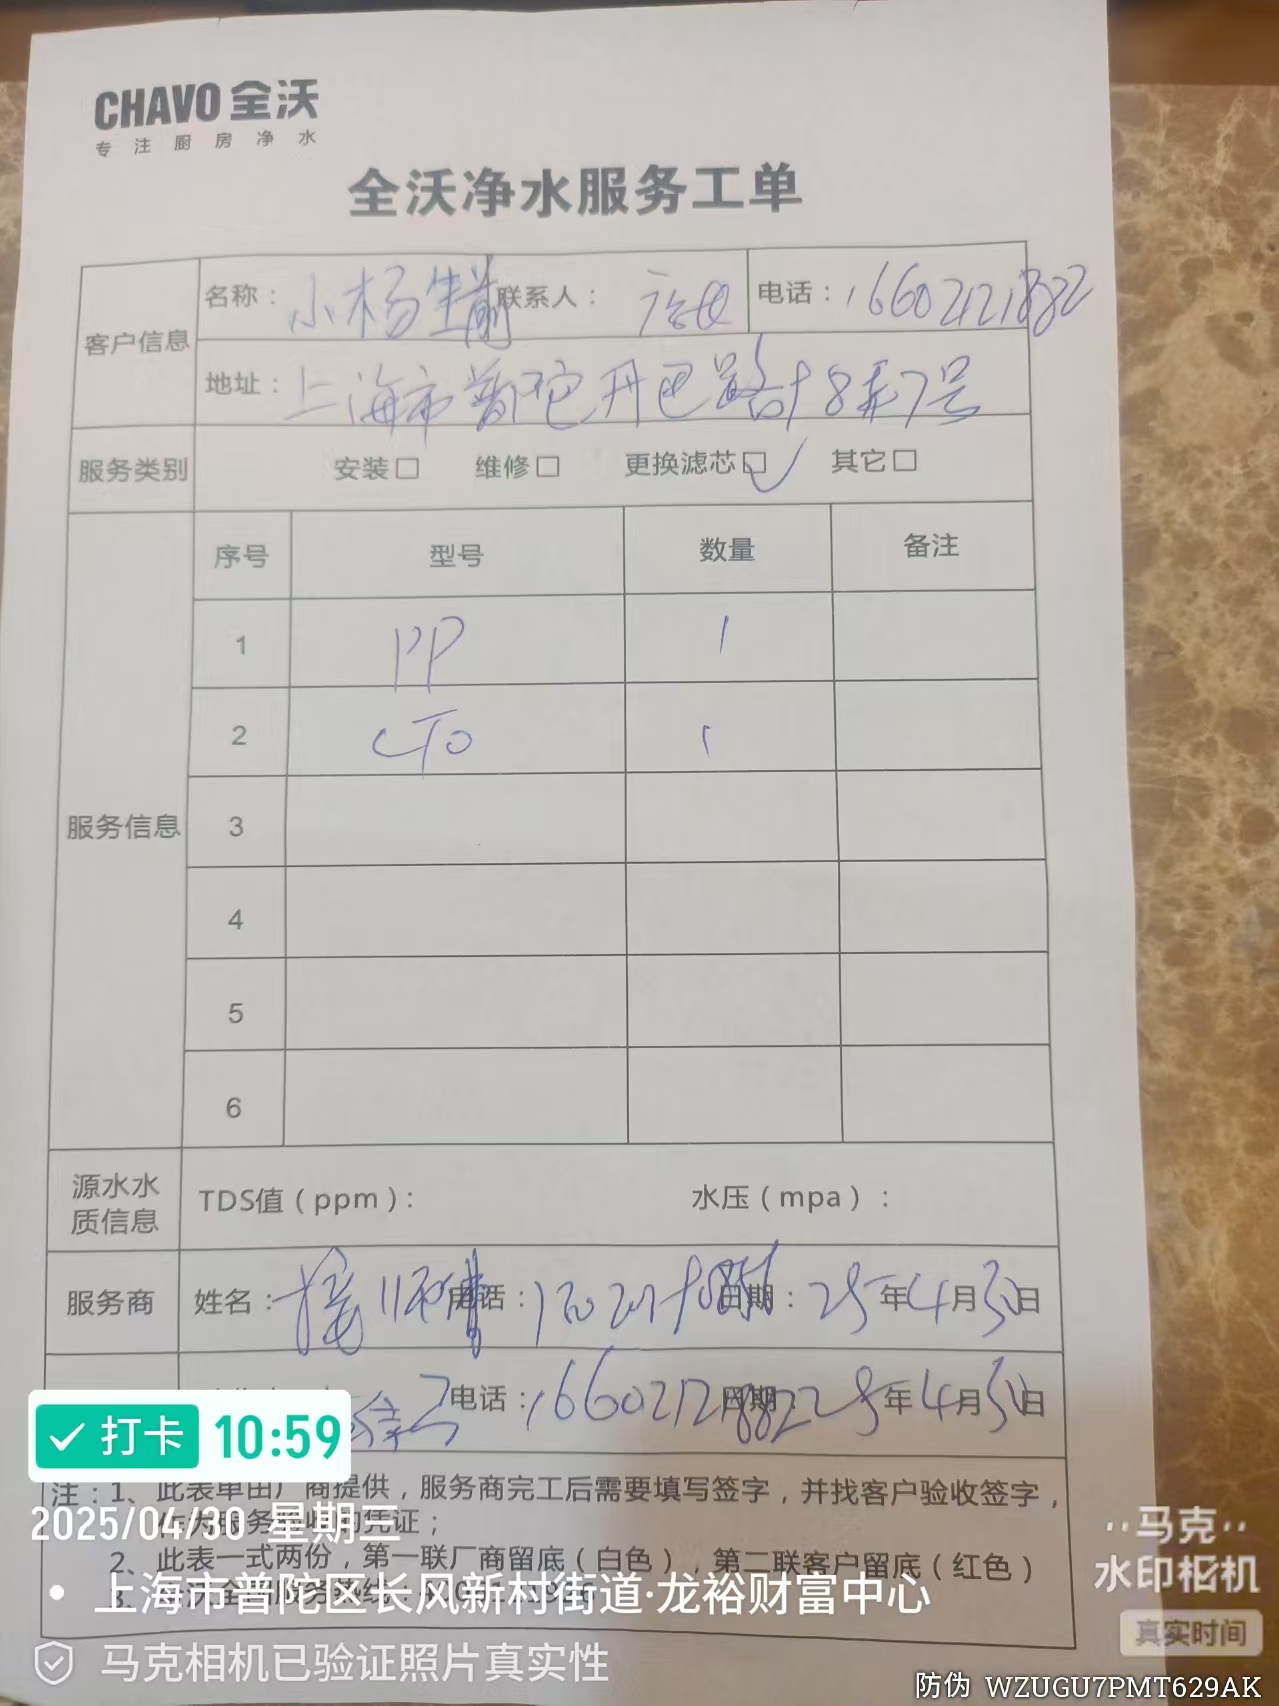 CHAVO 全沃
专注厨房净水
全沃净水服务工单
客户信息
名称：小杨生煎 联系人： 电话：16602121882
地址：上海市普陀丹巴路18弄7号
服务类别 安装□ 维修□ 更换滤芯☑ 其它□
服务信息
序号 型号 数量 备注
1 PP 1
2 CTO 1
3
4
5
6
源水水质信息 TDS值（ppm）： 水压（mpa）：
服务商 姓名： 电话： 日期：25年4月30日
电话：16602121882 日期：25年4月30日
注：1、此表单由厂商提供，服务商完工后需要填写签字，并找客户验收签字，
作为服务验收的凭证；
2、此表一式两份，第一联厂商留底（白色），第二联客户留底（红色）
打卡 10:59
2025/04/30 星期三
上海市普陀区长风新村街道·龙裕财富中心
马克相机已验证照片真实性
马克
水印相机
真实时间
防伪 WZUGU7PMT629AK